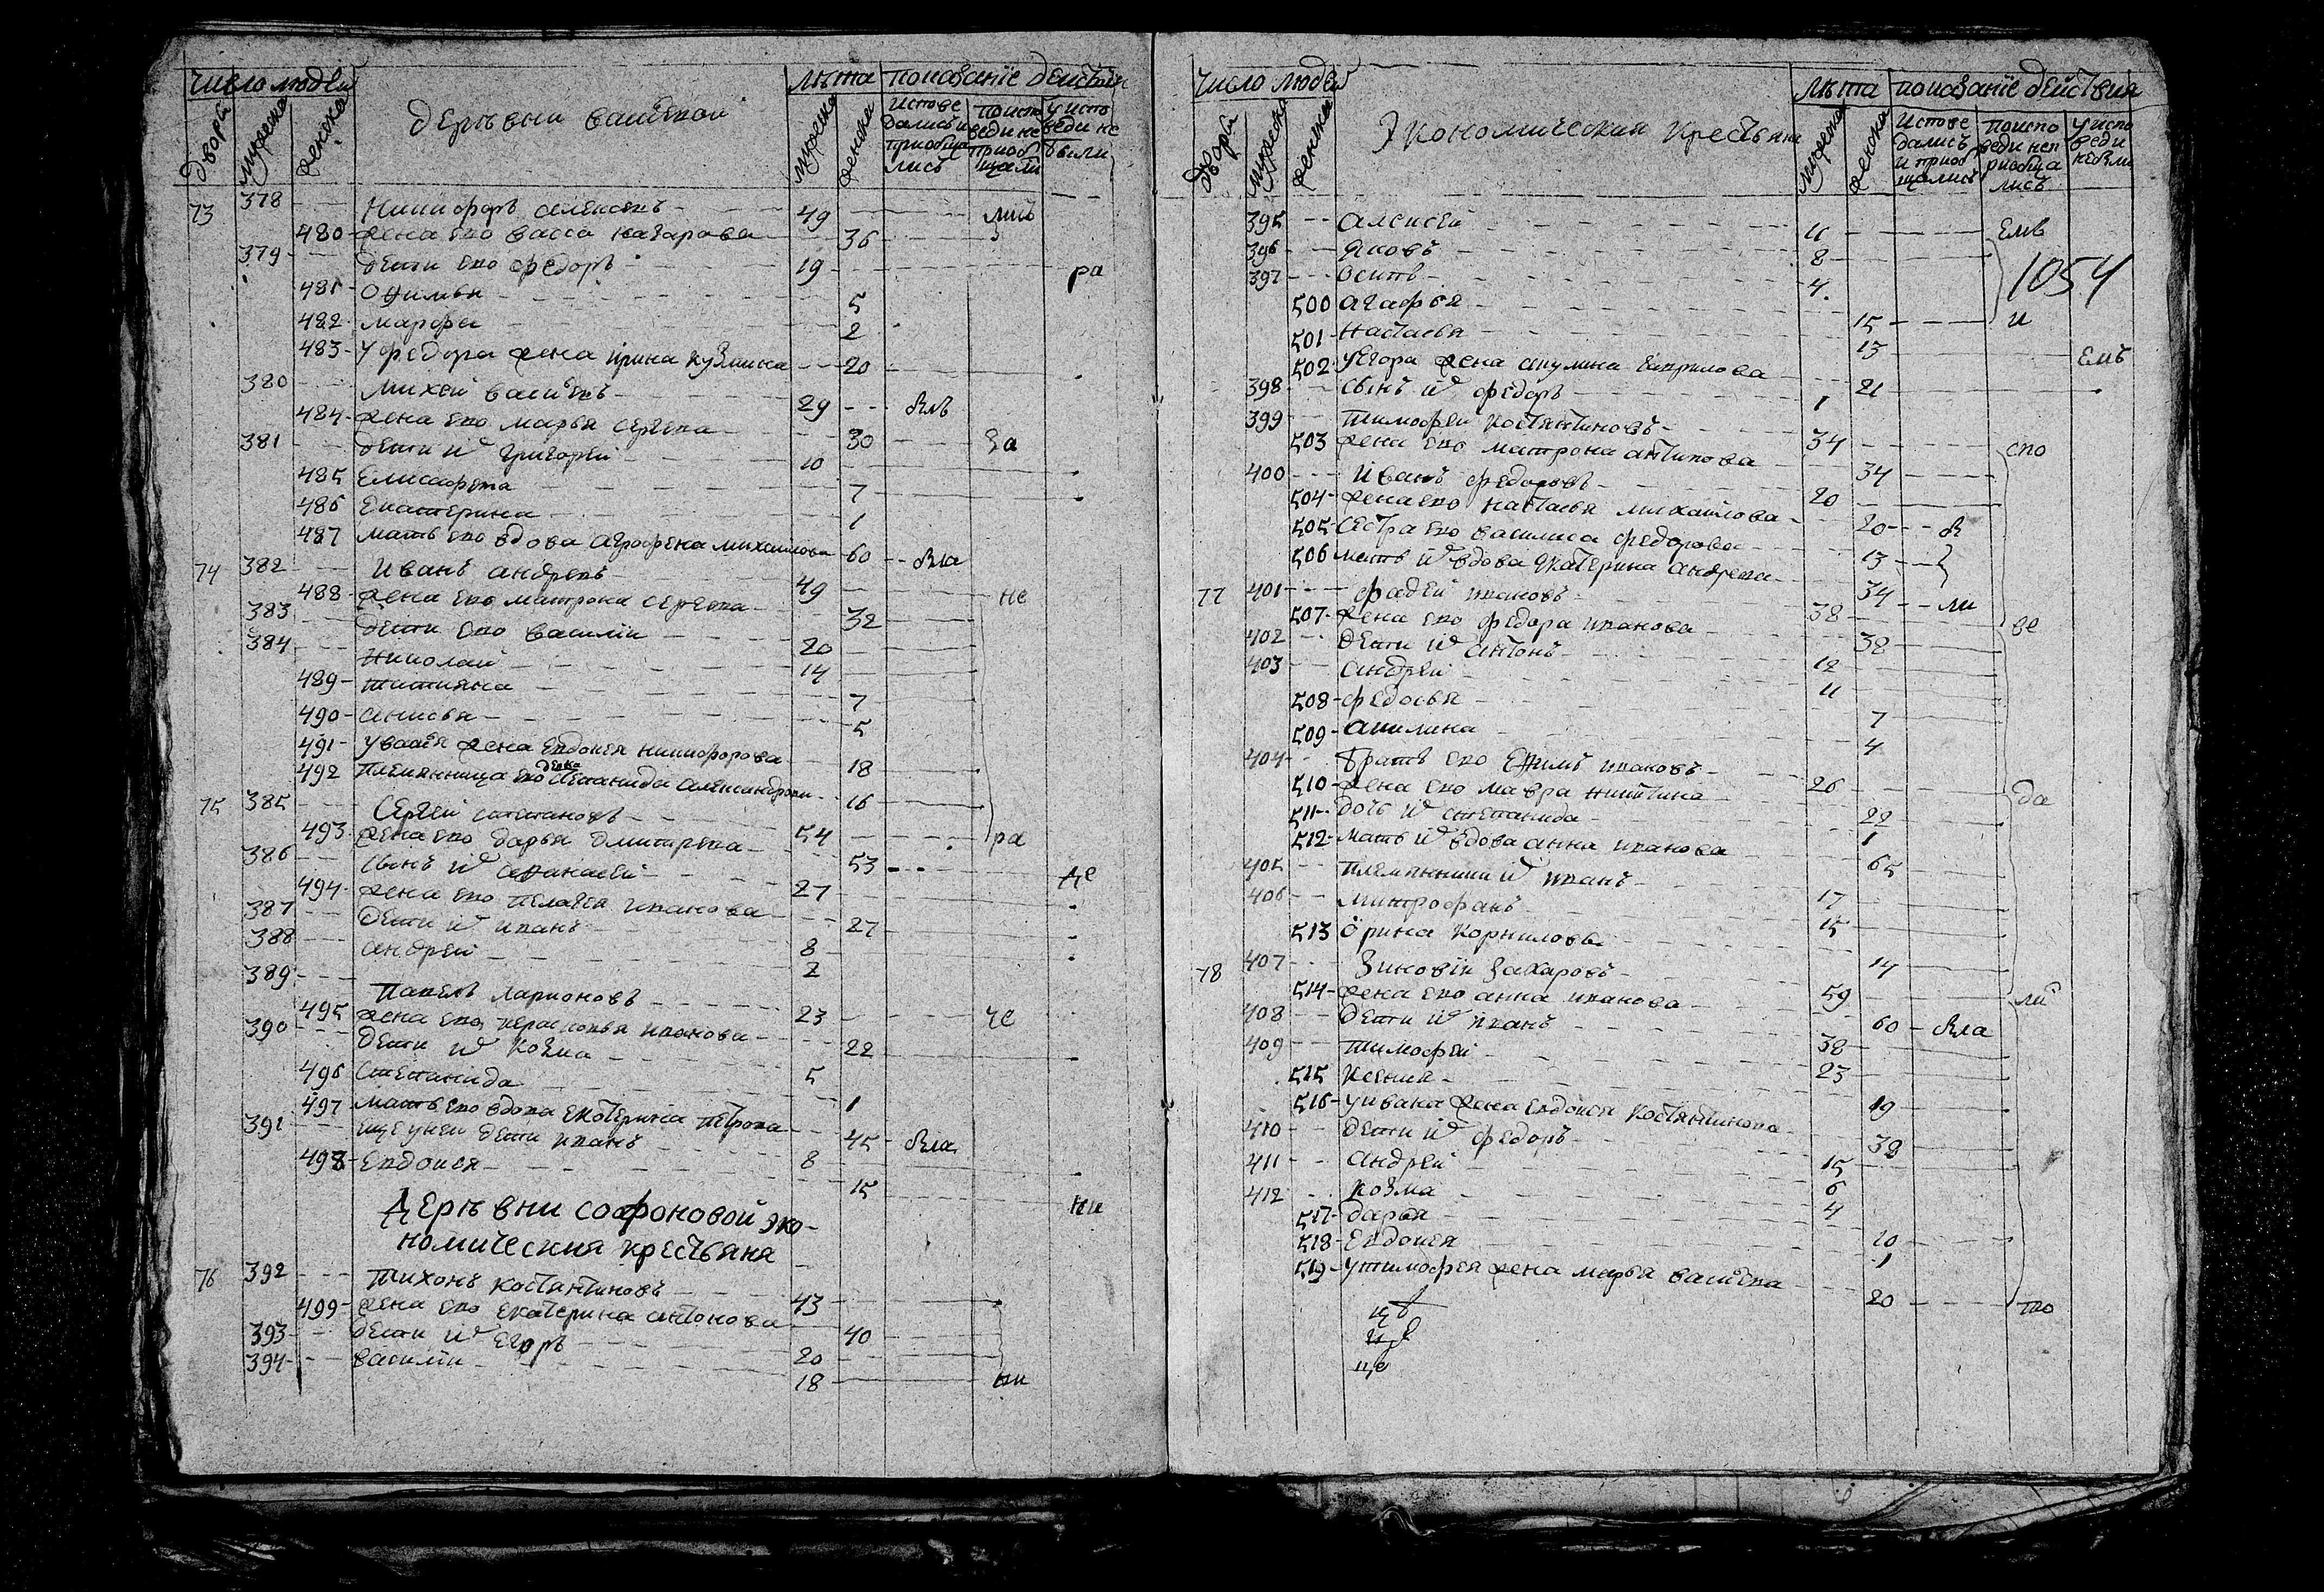 число людей
деревни
лѣта
показанїе действия
двори
мужеска
женска
мужеска
женска
испове
дались и
приобща
лись
поиспо
веди не
приоб
щали
уиспо
веди не
были
73 378 Никифоръ алексевъ 49 лись
480 жена ево васса назарова 36
379 дети ево федоръ 19 ра
481 офимья 5
482 марфа 2
483 у федора жена ирина кузмина 20
380 михей васильевъ 29
484 жена ево марья сергева 30 за
381 дети ихъ григорей 10
485 елисафета 7
486 екатерина 1
487 мать ево вдова аграфена михаилова 60
74 382 иванъ андревъ 49 не
488 жена ево матрона сергева 32
383 дети ево василїи 20
384 николай 14
489 татияна 7
490 анисья 5
491 жена евдокея никифорова 18
492 племянница ево девка степанида александрова 16
75 385 сергей степановъ 54 ра
493 жена ево дарья дмитрева 53
386 сынъ ихъ афанасей 27 де
494 жена ево пелагея иванова 27
387 дети ихъ иванъ 8
388 андрей 2
389 павелъ ларионовъ 23 че
495 жена ево парасковья иванова 22
390 дети ихъ козма 5
496 степанида 1
497 мать ево вдова екатерина петрова 45
391 еще у неи дети иванъ 8
498 евдокея 15
деревни софоновой эко-
номическия крестьяня
76 392 тихонъ костянтиновъ 43
499 жена ево екатерина антонова 40
393 дети ихъ егоръ 20
394 василїи 18
число людей
экономическия крестьяня
лѣта
показанїе действия
двори
мужеска
женска
мужеска
женска
испове
дались
и приоб
щались
поиспо
веди неп
риобща
лись
уиспо
веди
небыли
395 алексей 11
396 яковъ 8
397 осипъ 4
1054
500 агафья 15 и
501 настасья 13
502 у егора жена акулина гаврилова 21
398 сынъ ихъ федоръ 1
399 тимофеи костянтиновъ 34 спо
503 жена ево матрона антипова 34
400 иванъ федоровъ 20
504 жена ево настасья михаилова 20
505 сестра ево василиса федорова 13
506 мать ихъ вдова екатерина андрева 34 ли
77 401 фадей ивановъ 38 ве
507 жена ево федора иванова 38
402 дети ихъ антонъ 12
403 андрей 11
508 федосья 7
509 акилина 4
404 братъ ево ефимъ ивановъ 26 да
510 жена ево мавра никитина 22
511 дочь ихъ степанида 1
512 мать ихъ вдова анна иванова 65
405 племянники ихъ иванъ 17
406 митрофанъ 15
513 орина корнилова 14
78 407 зиновїи захаровъ 59 ли
514 жена ево анна иванова 60
408 дети ихъ иванъ 38
409 тимофеи 23
515 ксения 19
516 у ивана жена евдокея костянтинова 38
410 дети ихъ федоръ 15
411 андрей 6
412 козма 4
517 дарья 10
518 евдокея 1
519 у тимофея жена марья васильева 20